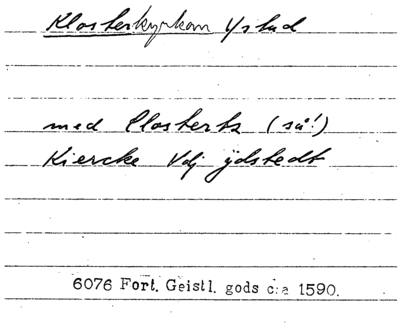 Klosterkyrkan Ystad
med Closterts (så!)
Kiercke Vdj ÿdstedt
6076 Fort. Geistl. gods c:a 1590.